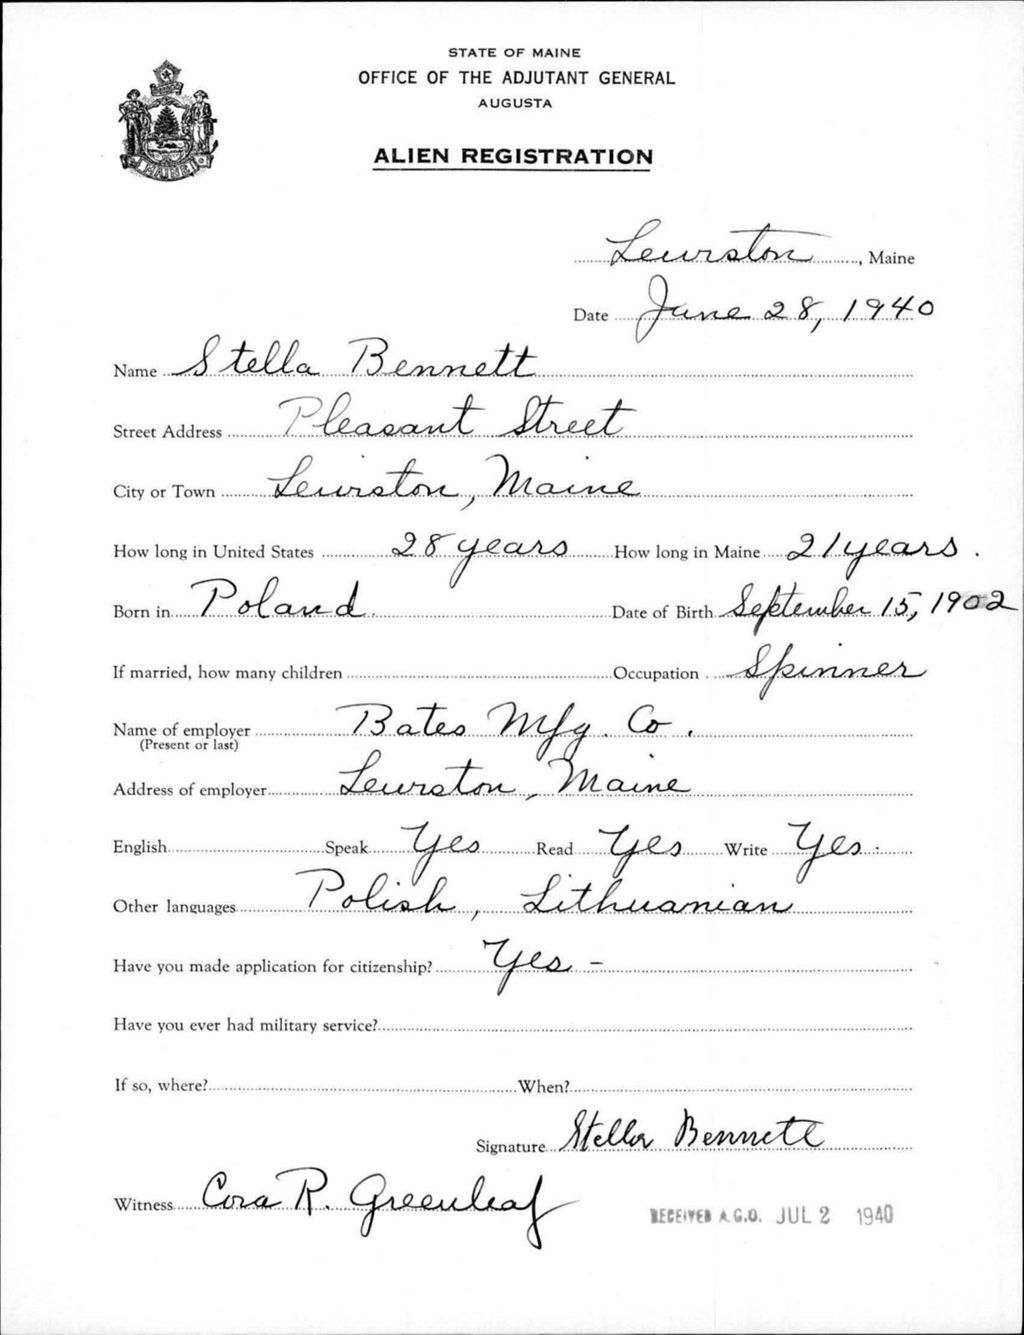 STATE OF MAINE
OFFICE OF THE ADJUTANT GENERAL
AUGUSTA
ALIEN REGISTRATION
MAINE
Lewiston, Maine
Date June 28, 1940
Name Stella Bennett
Street Address Pleasant Street
City or Town Lewiston, Maine
How long in United States 28 years How long in Maine 21 years.
Born in Poland. Date of Birth September 15, 1902
If married, how many children Occupation Spinner
Name of employer Bates Mfg. Co.
(Present or last)
Address of employer Lewiston, Maine
English Speak Yes Read Yes Write Yes.
Other languages Polish, Lithuanian
Have you made application for citizenship? Yes -
Have you ever had military service?
If so, where? When?
Signature Stella Bennett
Witness Cora R. Greenleaf
RECEIVED A.G.O. JUL 2 1940